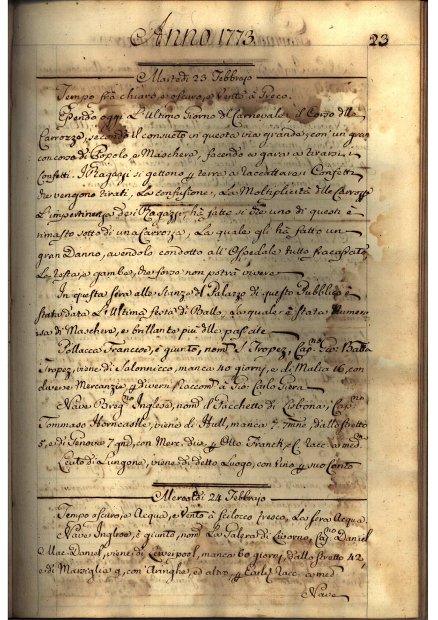 Anno 1773.
23
Martedì 23 Febbrajo
Tempo frà chiaro, e oscuro, e Vento à Greco.
Essendo oggi L'Ultimo Giorno di Carnevale, il Corso delle
Carrozze, secondo il consueto in questa via grande, con un gran
concorso di Popolo, e Maschere, facendo a gara a tirarsi i
Confetti. I Ragazzi si gettono p terra a raccattare i Confetti
che vengono tirati, La confusione, La Moltiplicità delle Carrozze
L'impertinenza dei Ragazzi, hà fatto si che uno di questi è
rimasto sotto di una Carrozza, La quale gli hà fatto un
gran Danno, avendolo condotto all'Ospedale tutto fracassato
La testa, e gambe, che forse non potrà vivere
In questa sera alle Stanze del Palazzo di questo Pubblico è
stata data L'Ultima festa di Ballo, La quale è stata numero=
sa di Maschere, e brillante più delle passate
Pollacca Francese, è giunto, nom. S. Tropez, Cap.no Gio: Batta
Tropez, viene di Salonnicco, manca 40 giorni, e di Malta 16, con
diverse Mercanzie, p diversi Raccom. à Gio: Carlo
Nave Inglese, nom. il Pacchetto di Lisbona, Cap.no
Tommaso Horncastle, viene di Hull, manca 7 mne, dallo stretto
5, e di Genova 7 gni, con Merc. div.e, p Otto Franck, e C. Racc. a med.
Leuto di Lungone, viene di detto Luogo, con vino p suo Conto
Mercoledì 24 Febbrajo
Tempo oscuro, e Acqua, e Vento à Scilocco fresco, La sera Acqua.
Nave Inglese, è giunto, nom. La Galera di Livorno, Cap.no Daniel
Mac-Daniel, viene di Liverpool, manca 60 giorni, dallo stretto 42,
e di Marsiglia 9, con Aringhe, ed altro, p Earle, Racc. a med.
Nave